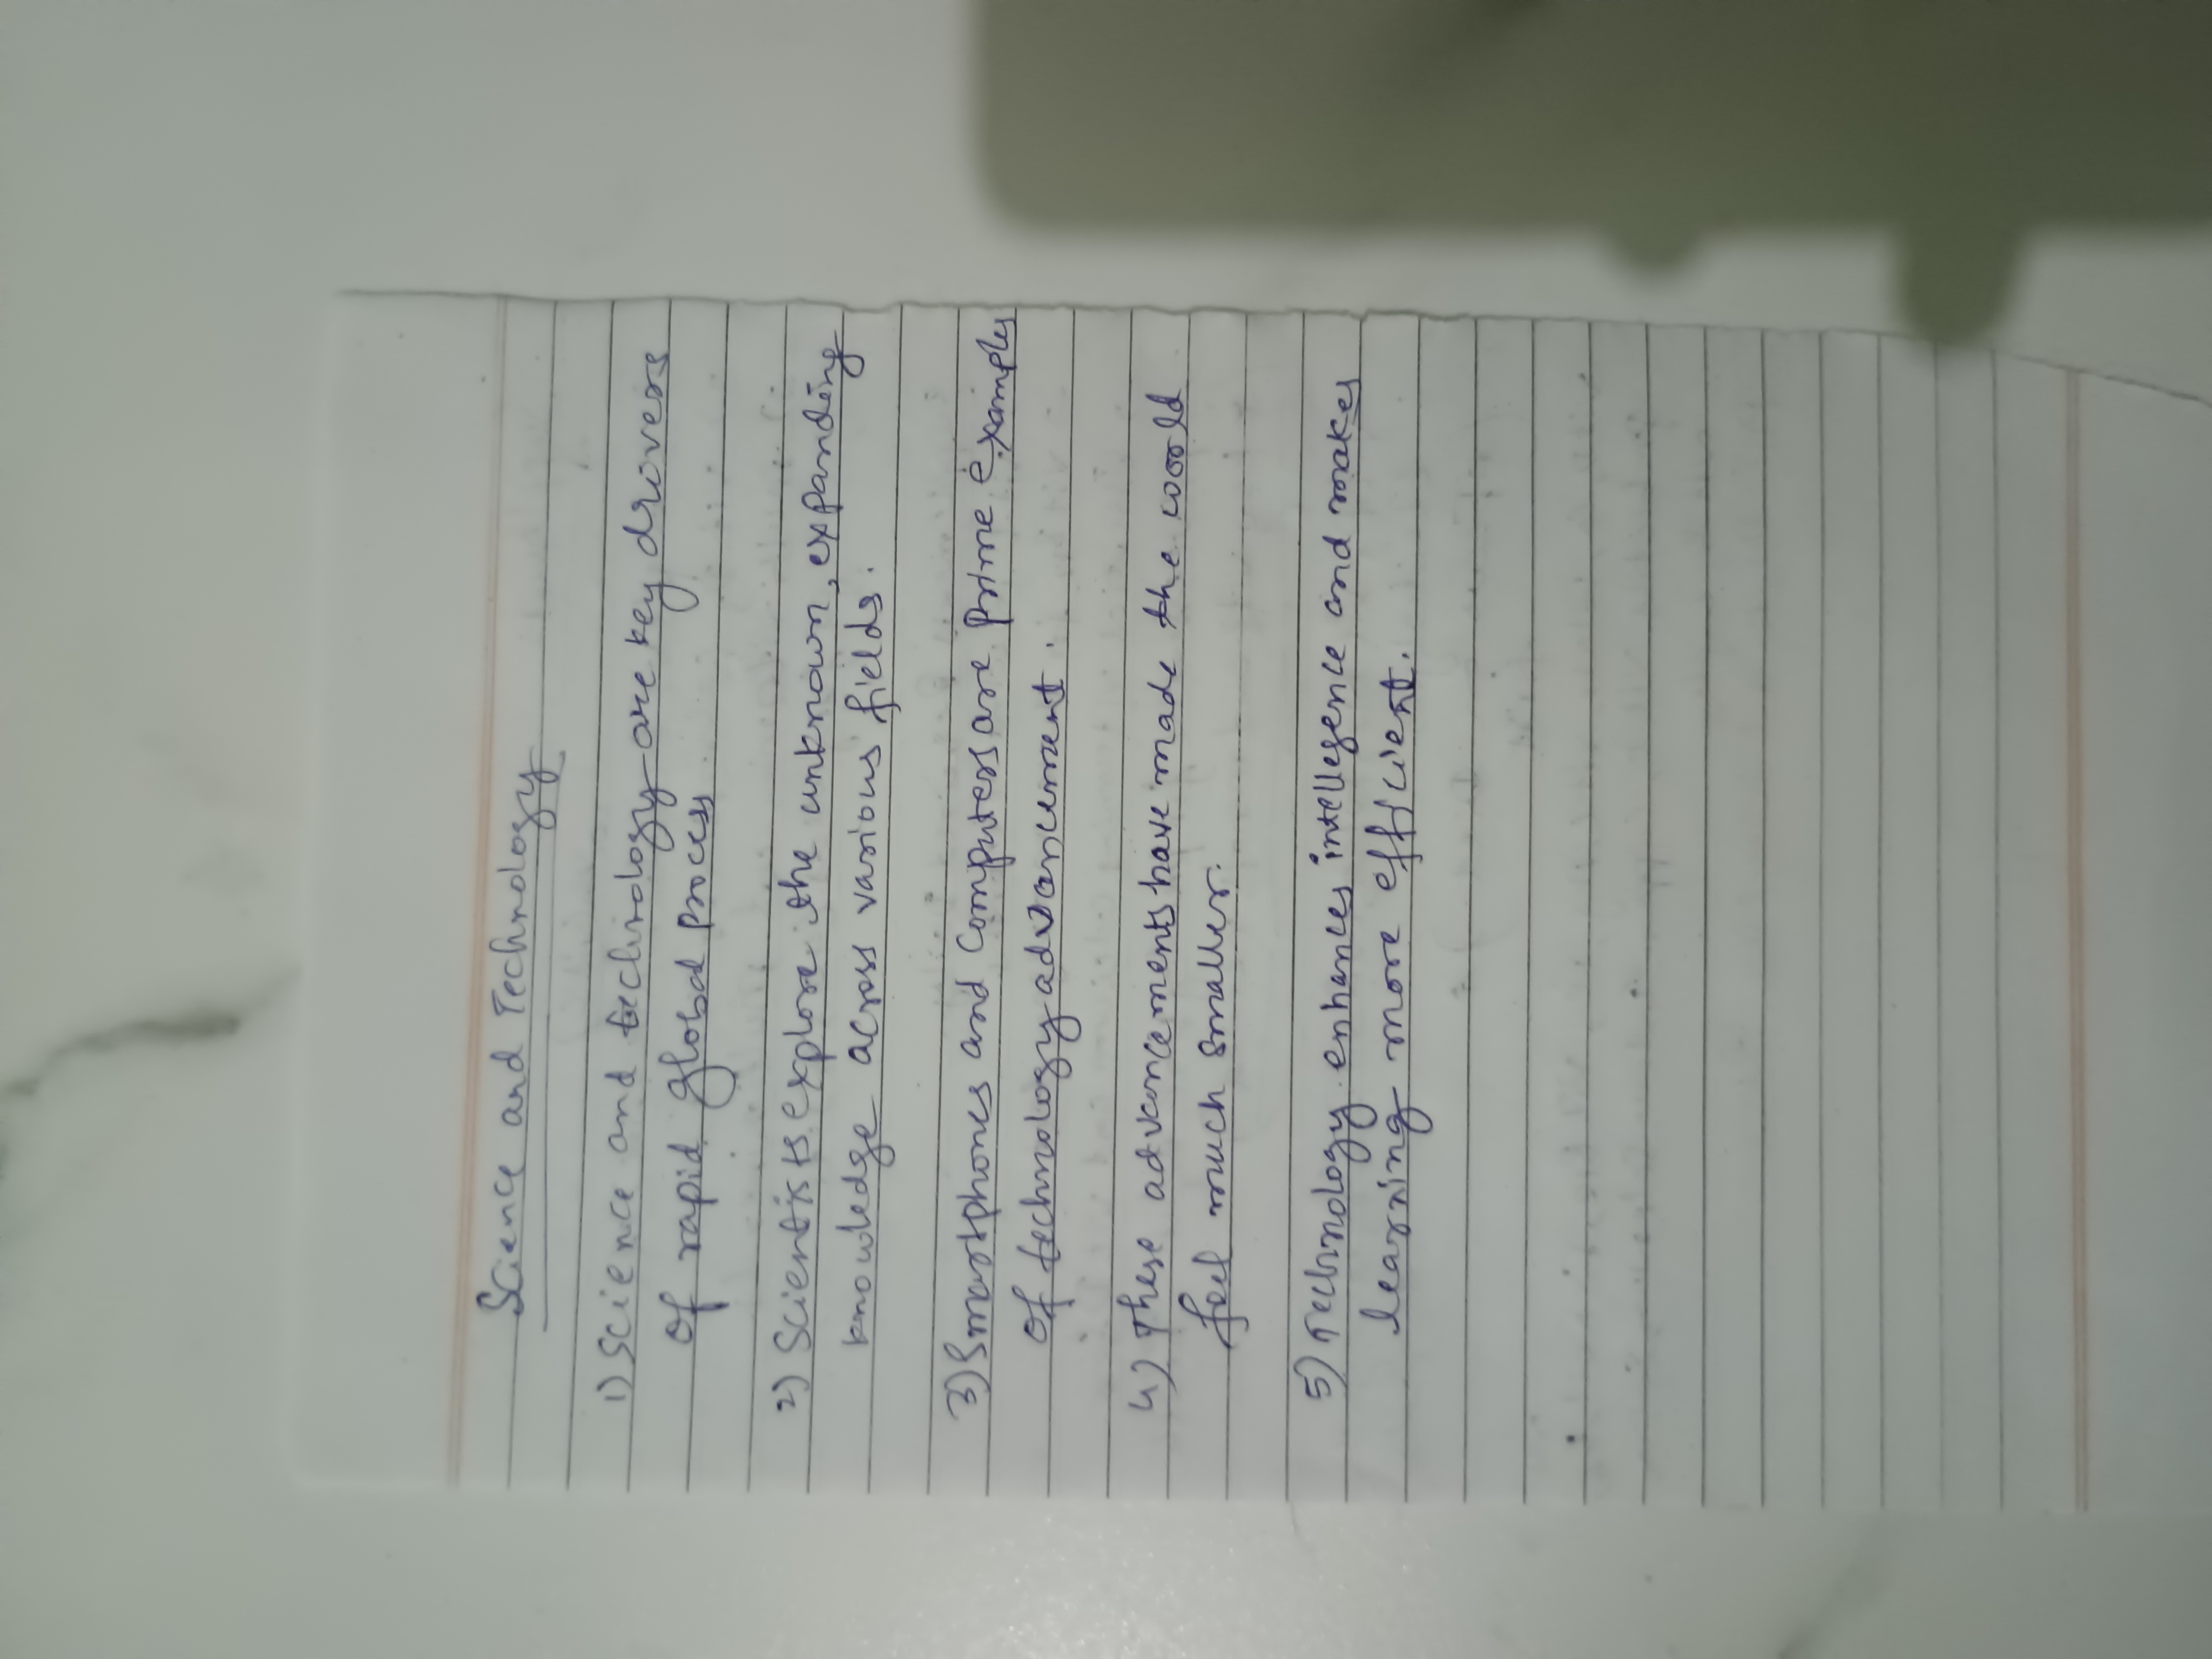 Science and Technology
1) Science and technology are key drivers
of rapid global process
2) Scientists explore the unknown, expanding
knowledge across various fields.
3) Smartphones and Computers are Prime examples
of technology advancement.
4) These advancements have made the world
feel much smaller.
5) Technology enhances intellegence and makes
learning more efficient.